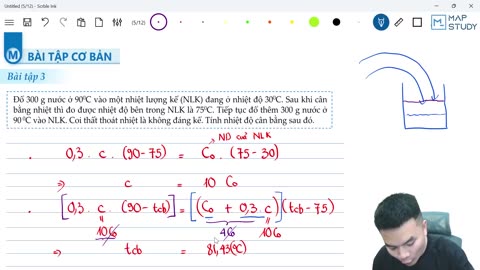 Untitled (5/12) - Scrble Ink
(5/12)
MAP
STUDY
M BÀI TẬP CƠ BẢN
Bài tập 3
Đổ 300 g nước ở 90⁰C vào một nhiệt lượng kế (NLK) đang ở nhiệt độ 30⁰C. Sau khi cân
bằng nhiệt thì đo được nhiệt độ bên trong NLK là 75⁰C. Tiếp tục đổ thêm 300 g nước ở
90⁰C vào NLK. Coi thất thoát nhiệt là không đáng kể. Tính nhiệt độ cân bằng sau đó.
ND của NLK
0,3 . c . (90 - 75) = C₀ . (75 - 30)
=> c = 10 C₀
[0,3 . c . (90 - tcb)] = [(C₀ + 0,3 . c)](tcb - 75)
10C₀ 4C₀ 10C₀
=> tcb = 81,43 (°C)